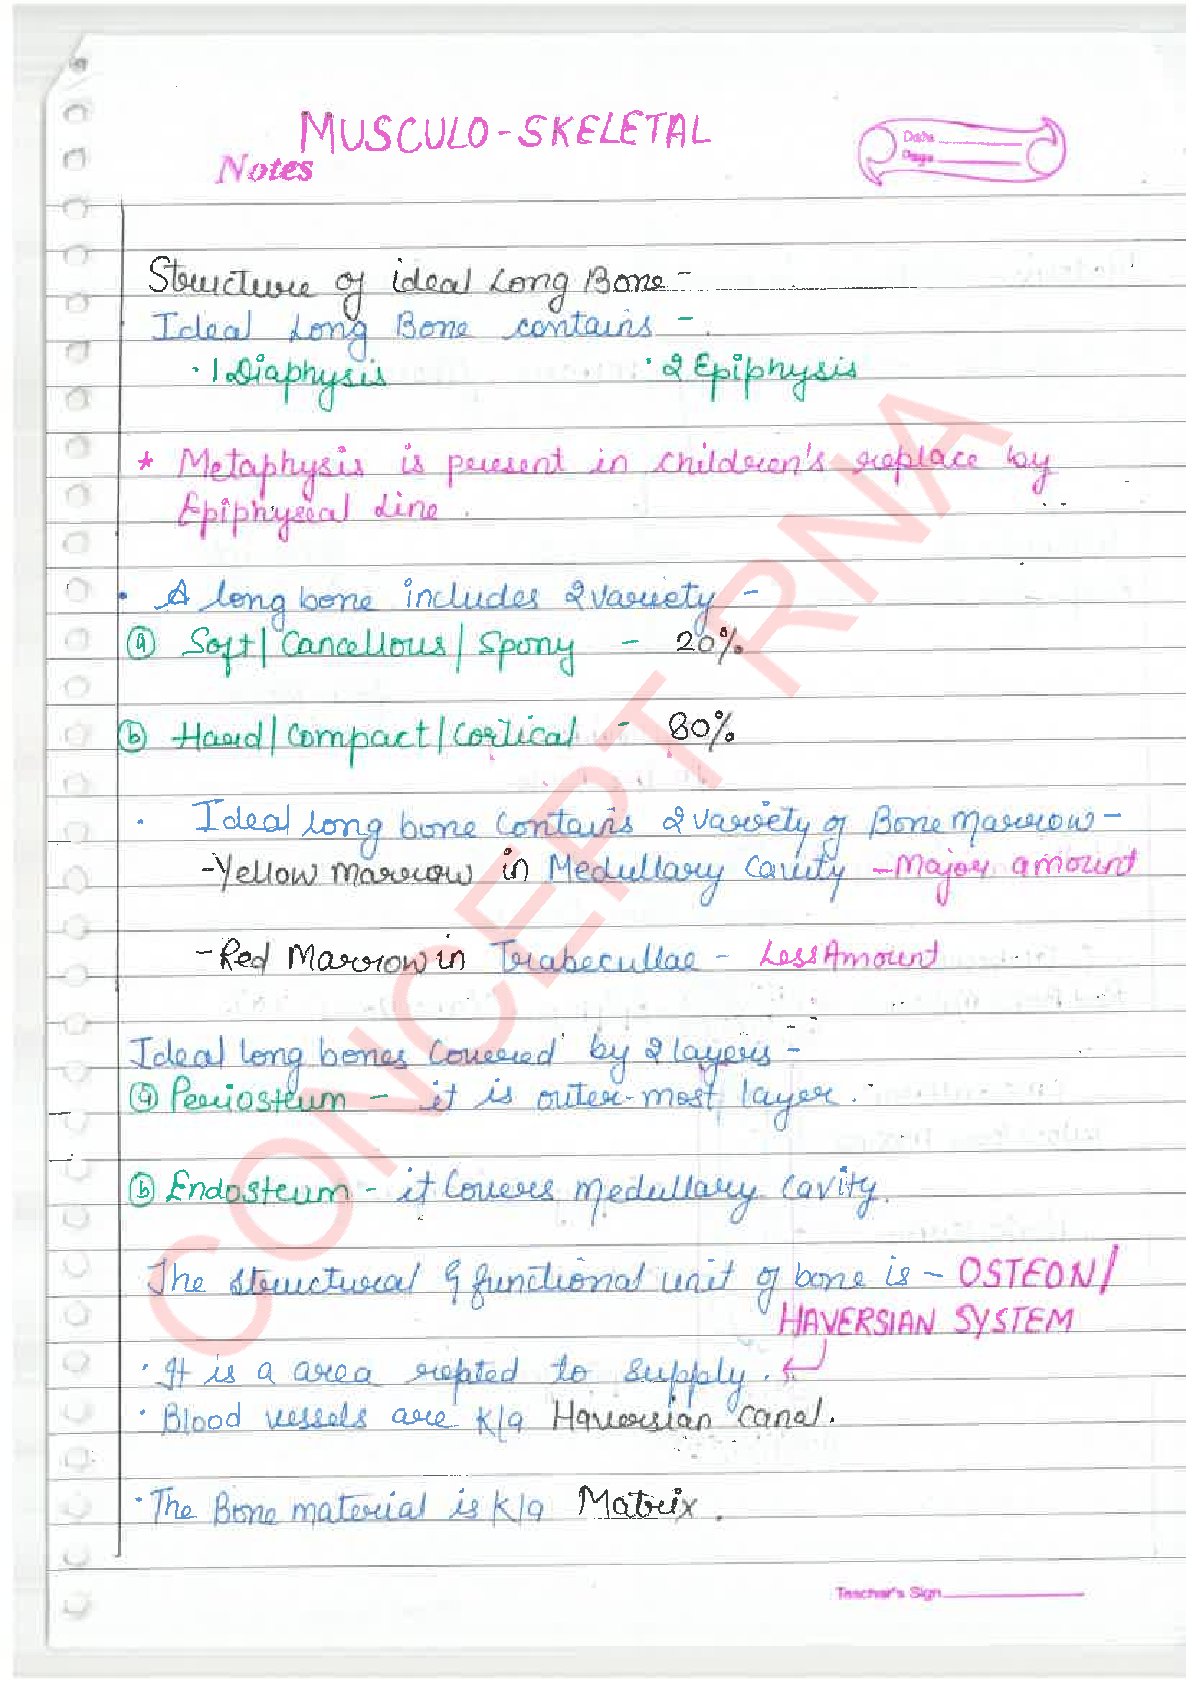 MUSCULO-SKELETAL
Notes
Date
Page
Structure of ideal Long Bone -
Ideal Long Bone contains -
· 1 Diaphysis · 2 Epiphysis
* Metaphysis is present in children's replace by
Epiphyseal Line.
· A long bone includes 2 variety -
(a) Soft/Cancellous/Spony - 20%
(b) Hard/Compact/Cortical - 80%
· Ideal long bone contains 2 variety of Bone Marrow -
- Yellow Marrow in Medullary Cavity - Major amount
- Red Marrow in Trabecullae - Less Amount
Ideal long bones Covered by 2 layers -
(a) Periosteum - it is outer-most layer.
(b) Endosteum - it Covers medullary cavity.
The structural & functional unit of bone is - OSTEON/
HAVERSIAN SYSTEM
· It is a area to supply.
· Blood vessels are K/a Haversian canal.
· The Bone material is K/a Matrix.
Teacher's Sign
CONCEPT RNA